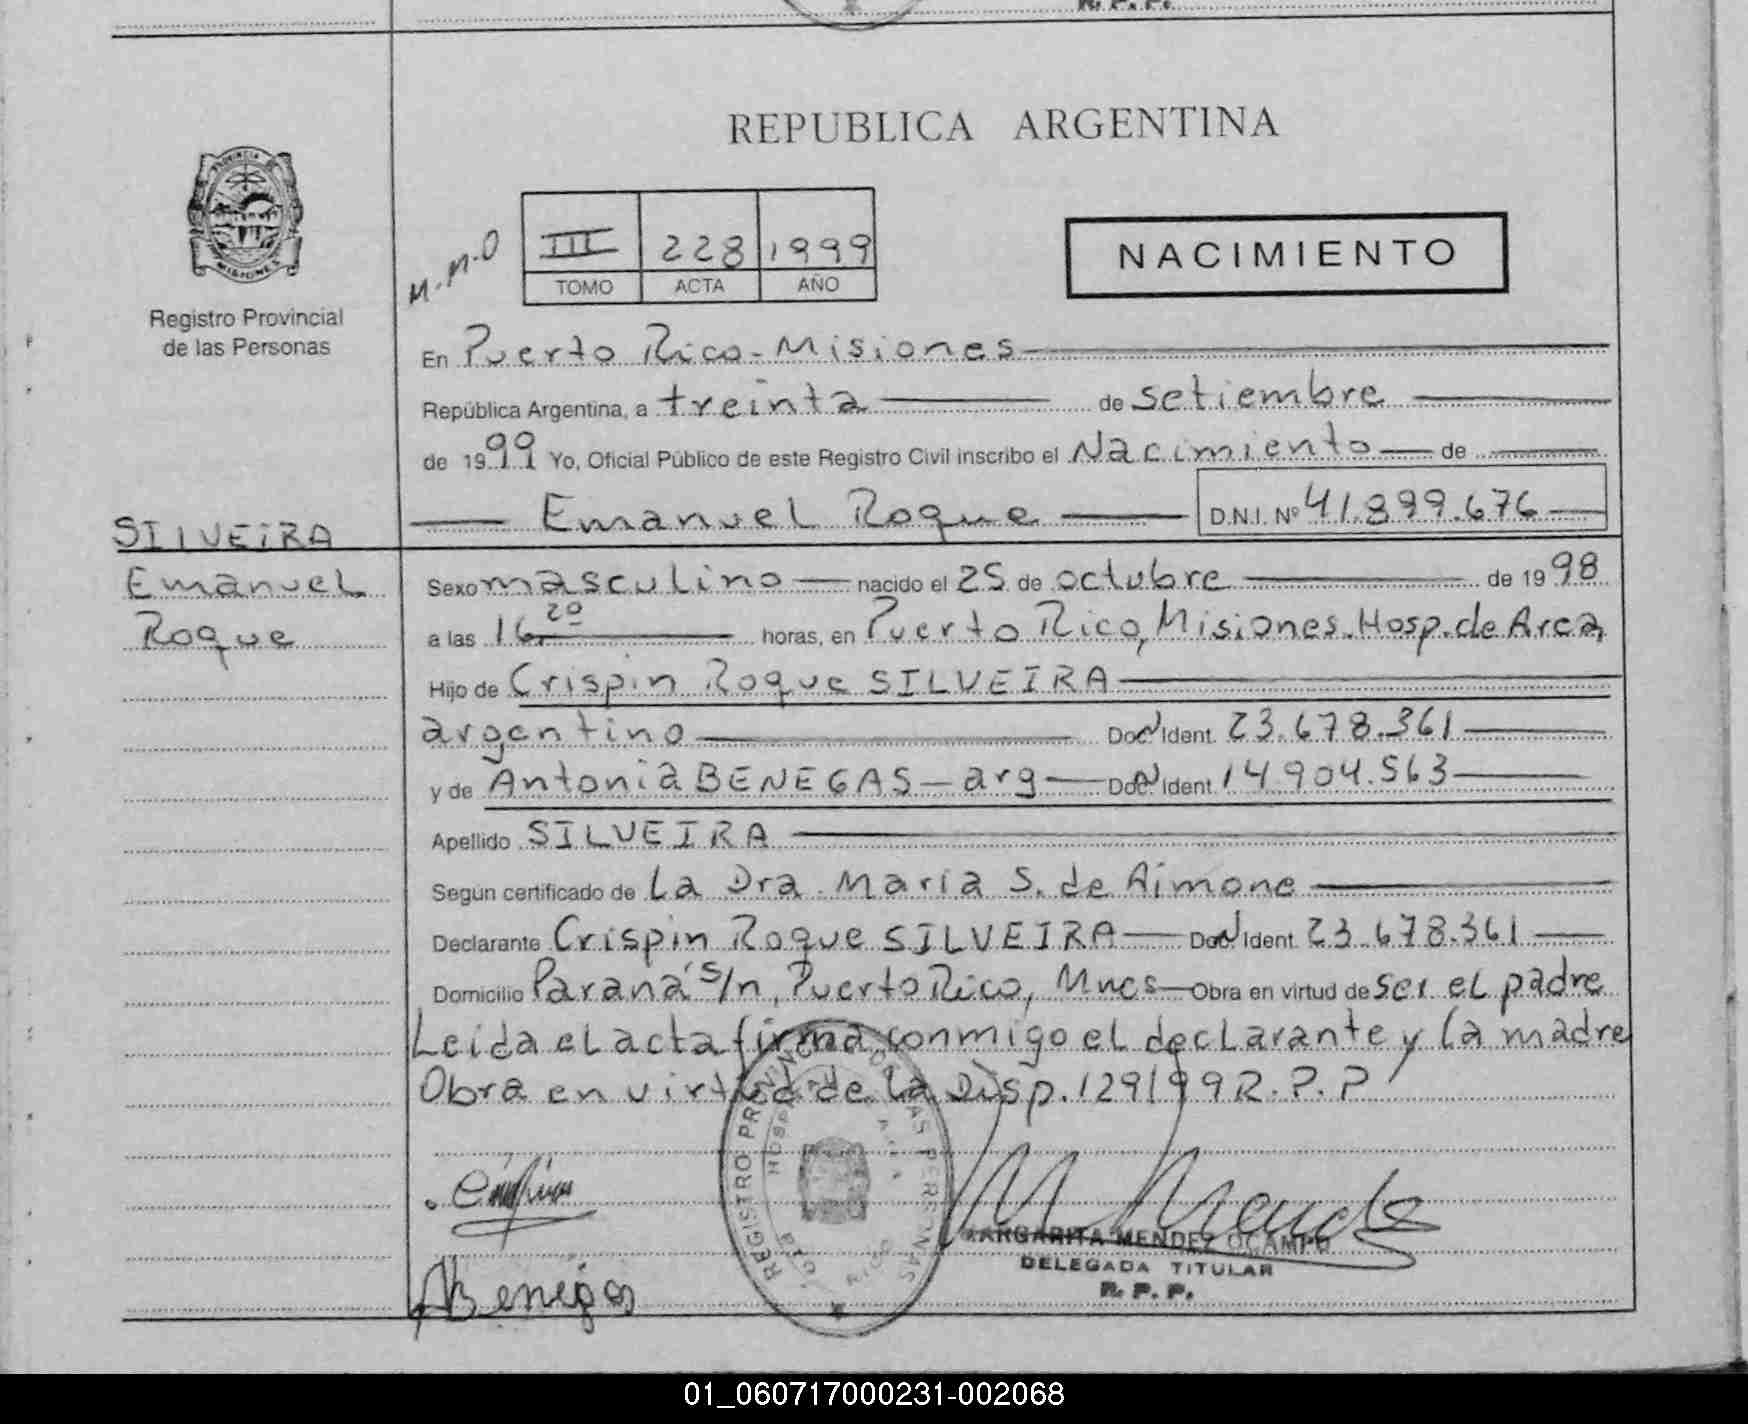 R. P. P.
REPUBLICA ARGENTINA
PROVINCIA DE
MISIONES
Registro Provincial
de las Personas
M.M.O
III 228 1999
TOMO ACTA AÑO
NACIMIENTO
En Puerto Rico - Misiones
República Argentina, a treinta de setiembre
de 1999 Yo, Oficial Público de este Registro Civil inscribo el Nacimiento de
Emanuel Roque D.N.I. Nº 41.899.676
SILVEIRA
Emanuel
Roque
Sexo masculino nacido el 25 de octubre de 1998
a las 16 20 horas, en Puerto Rico, Misiones. Hosp. de Area
Hijo de Crispin Roque SILVEIRA
argentino Doc. Ident. 23.678.361
y de Antonia BENEGAS - arg Doc. Ident. 14904.563
Apellido SILVEIRA
Según certificado de La Dra. Maria S. de Aimone
Declarante Crispin Roque SILVEIRA Doc. Ident. 23.678.361
Domicilio Paraná s/n, Puerto Rico, Mnes Obra en virtud de ser el padre
Leida el acta firma conmigo el declarante y la madre
Obra en virtud de la Disp. 129/99 R.P.P
REGISTRO PROVINCIAL DE LAS PERSONAS
HOSPITAL
RICO
M Mendez
MARGARITA MENDEZ OCAMPO
DELEGADA TITULAR
R. P. P.
ABenegas
01_060717000231-002068